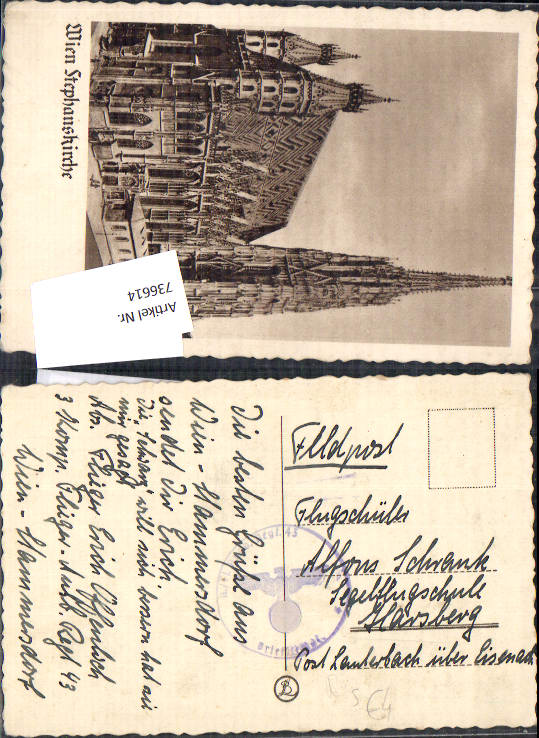 Wien Stephanskirche
Artikel Nr.
736614
Die besten Grüße aus
Wien - Hammersdorf
sendet dir Erich.
Die will noch hat sie
mir gesagt
Abs. Flieger Erich
3 Komp. Flieger - Ausb. Regt 43
Wien - Hammersdorf
Feldpost
Flugschüler
Alfons Schrank
Segelflugschule
Harsberg
Post Lauterbach über Eisenach
Regt. 43
Briefstempel